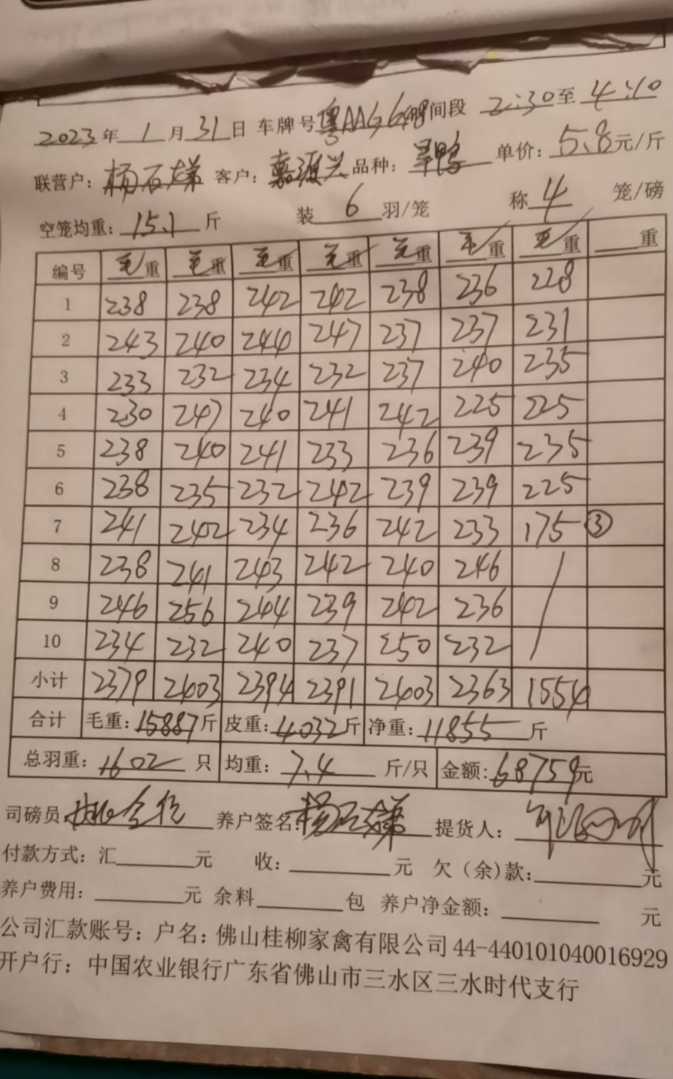 2023年1月31日 车牌号粤AAG6 时间段 2:30至4:10
联营户: 杨石娣 客户: 嘉源兴 品种: 单价: 5.8元/斤
空笼均重: 15.1斤 装 6 羽/笼 称 4 笼/磅
编号 毛重 毛重 毛重 毛重 毛重 毛重 毛重 重
1 238 238 242 242 238 236 228
2 243 240 244 247 237 237 231
3 233 232 234 232 237 240 235
4 230 247 240 241 242 225 225
5 238 240 241 233 236 239 235
6 238 235 232 242 239 239 225
7 241 242 234 236 242 233 175 ③
8 238 241 243 242 240 246 /
9 246 256 244 239 242 236 /
10 234 232 240 237 250 232 /
小计 2379 2403 2394 2391 2403 2363 1554
合计 毛重: 15887斤 皮重: 4032斤 净重: 11855斤
总羽重: 1602只 均重: 7.4斤/只 金额: 68759元
司磅员 养户签名: 杨石娣 提货人:
付款方式: 汇 元 收: 元 欠(余)款: 元
养户费用: 元 余料 包 养户净金额: 元
公司汇款账号: 户名: 佛山桂柳家禽有限公司 44-440101040016929
开户行: 中国农业银行广东省佛山市三水区三水时代支行